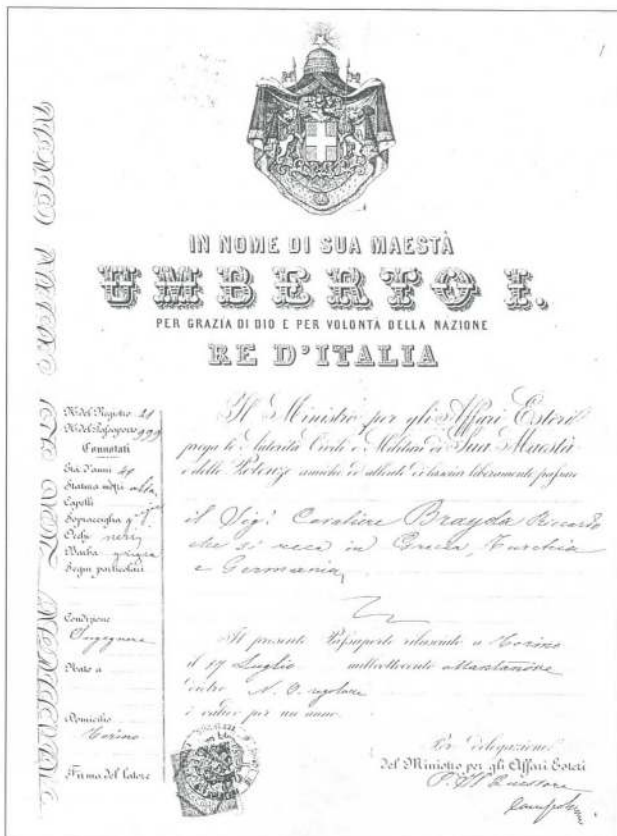 1
IN NOME DI SUA MAESTÀ
UMBERTO I.
PER GRAZIA DI DIO E PER VOLONTÀ DELLA NAZIONE
RE D'ITALIA
N.º del Registro 21
N.º del Passaporto 999
Connotati
Età d'anni
Statura metri
Capelli
Sopracciglia
Occhi neri
Barba grigia
Segni particolari
Condizione
Ingegnere
Nato a
Domicilio
Torino
Firma del Latore
Il Ministro per gli Affari Esteri
prega le Autorità Civili e Militari di Sua Maestà
e delle Potenze amiche di lasciar liberamente passare
il Sig.r Cavaliere Brayda Riccardo
che si reca in Grecia, Turchia
e Germania
Il presente Passaporto rilasciato a Torino
il 17 Luglio milleottocento ottantanove
dietro N. O. regolare
è valido per un anno.
Per delegazione
del Ministro per gli Affari Esteri
Il Questore